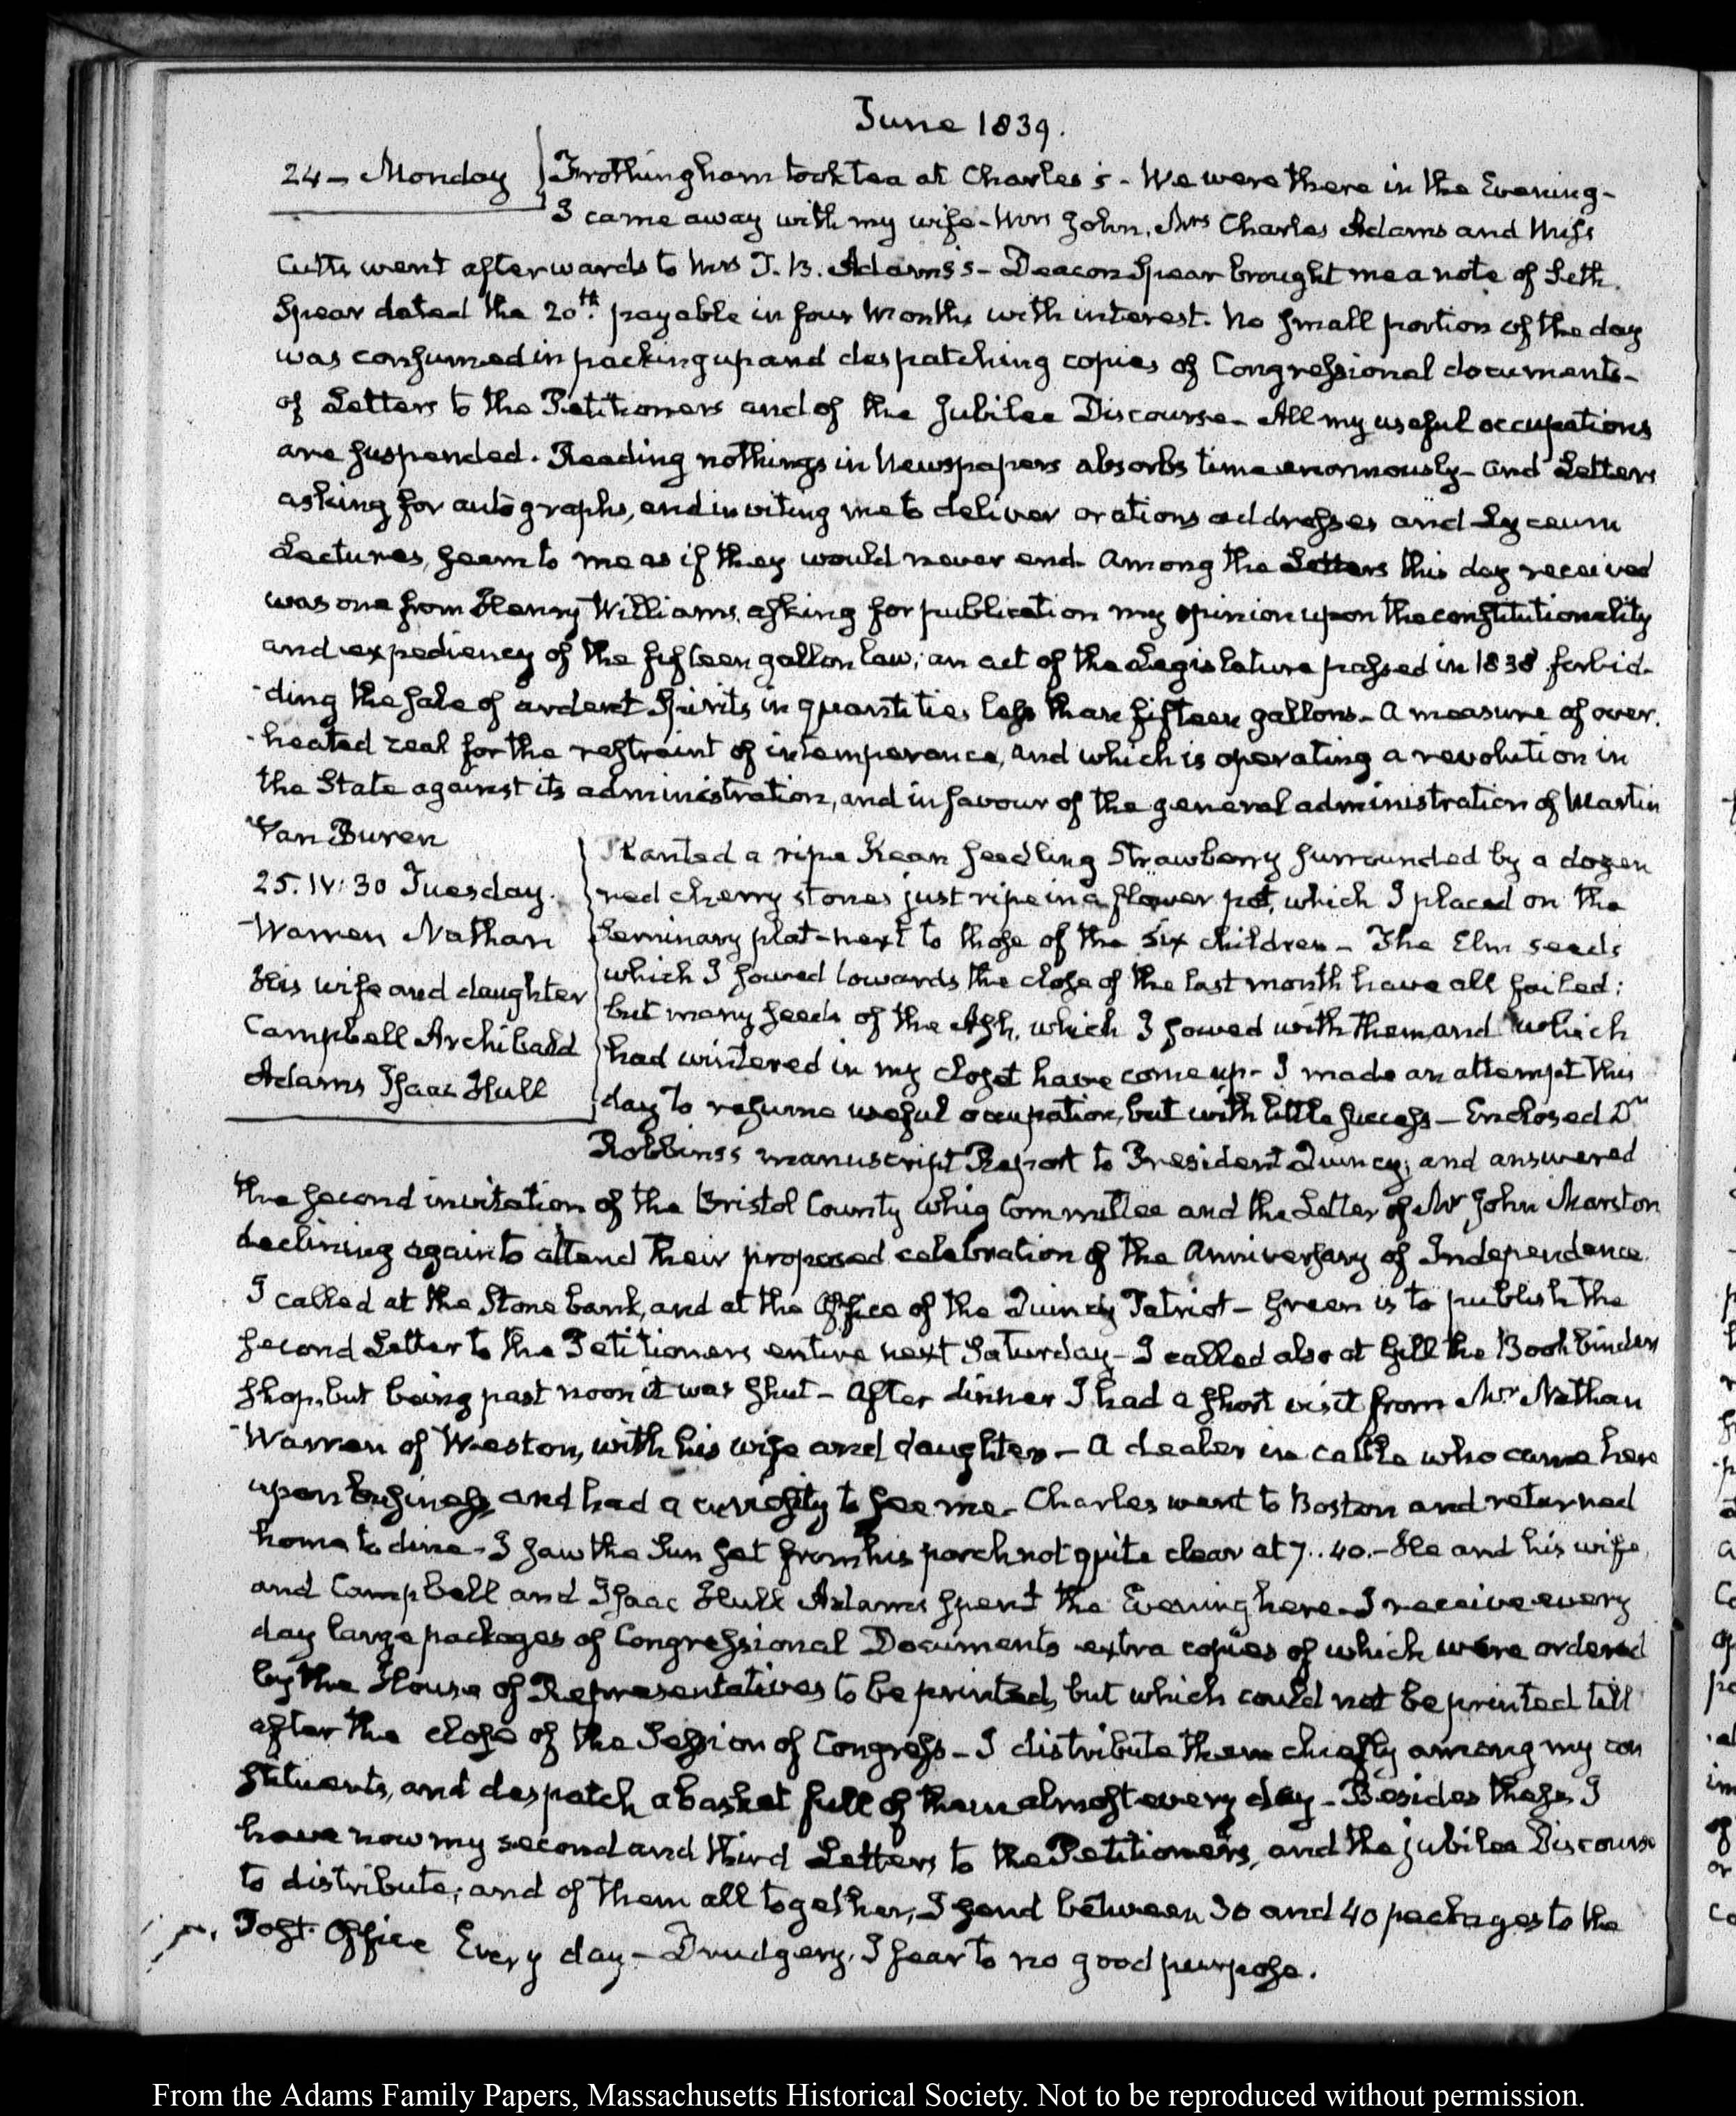 June 1839.
24 – Monday
Frothingham took tea at Charles's – We were there in the Evening –
I came away with my wife – Mrs John, Mrs Charles Adams and Miss
Cutts went afterwards to Mrs T. B. Adams's – Deacon Spear brought me a note of Seth
Spear dated the 20th. payable in four Months with interest. No small portion of the day
was consumed in packing up and despatching copies of Congressional documents –
of Letters to the Petitioners and of the Jubilee Discourse – All my useful occupations
are suspended. Reading nothings in Newspapers absorbs time enormously – and Letters
asking for autographs, and inviting me to deliver orations addresses and Lyceum
Lectures, seem to me as if they would never end. Among the Letters this day received
was one from Henry Williams, asking for publication my opinion upon the constitutionality
and expediency of the fifteen gallon law; an act of the Legislature passed in 1838 forbid-
-ding the sale of ardent Spirits in quantities less than fifteen gallons – A measure of over-
-heated zeal for the restraint of intemperance, and which is operating a revolution in
the State against its administration, and in favour of the general administration of Martin
Van Buren
25. IV:30 Tuesday.
Warren Nathan
His wife and daughter
Campbell Archibald
Adams Isaac Hull
Planted a ripe Kean Seedling Strawberry surrounded by a dozen
red cherry stones just ripe in a flower pot, which I placed on the
Seminary plat – next to those of the six children – The Elm seeds
which I sowed towards the close of the last month have all failed;
but many seeds of the Ash, which I sowed with them and which
had wintered in my closet have come up – I made an attempt this
day to resume useful occupation, but with little success – Enclosed Dr
Robbins's manuscript Report to President Quincy; and answered
the second invitation of the Bristol County Whig Committee and the Letter of Mr John Marston
declining again to attend their proposed celebration of the Anniversary of Independence.
I called at the Stone bank, and at the Office of the Quincy Patriot – Green is to publish the
second Letter to the Petitioners entire next Saturday – I called also at Gill the Bookbinders
shop, but being past noon it was shut – After dinner I had a short visit from Mr Nathan
Warren of Weston, with his wife and daughter – A dealer in cattle who came here
upon business, and had a curiosity to see me – Charles went to Boston and returned
home to dine – I saw the Sun set from his porch not quite clear at 7..40. – He and his wife,
and Campbell and Isaac Hull Adams spent the Evening here – I receive every
day large packages of Congressional Documents extra copies of which were ordered
by the House of Representatives to be printed, but which could not be printed till
after the close of the Session of Congress – I distribute them chiefly among my con
stituents, and despatch a basket full of them almost every day – Besides these I
have now my second and third Letters to the Petitioners, and the jubilee Discourse
to distribute; and of them all together, I send between 30 and 40 packages to the
Post-Office Every day – Drudgery, I fear to no good purpose.
From the Adams Family Papers, Massachusetts Historical Society. Not to be reproduced without permission.